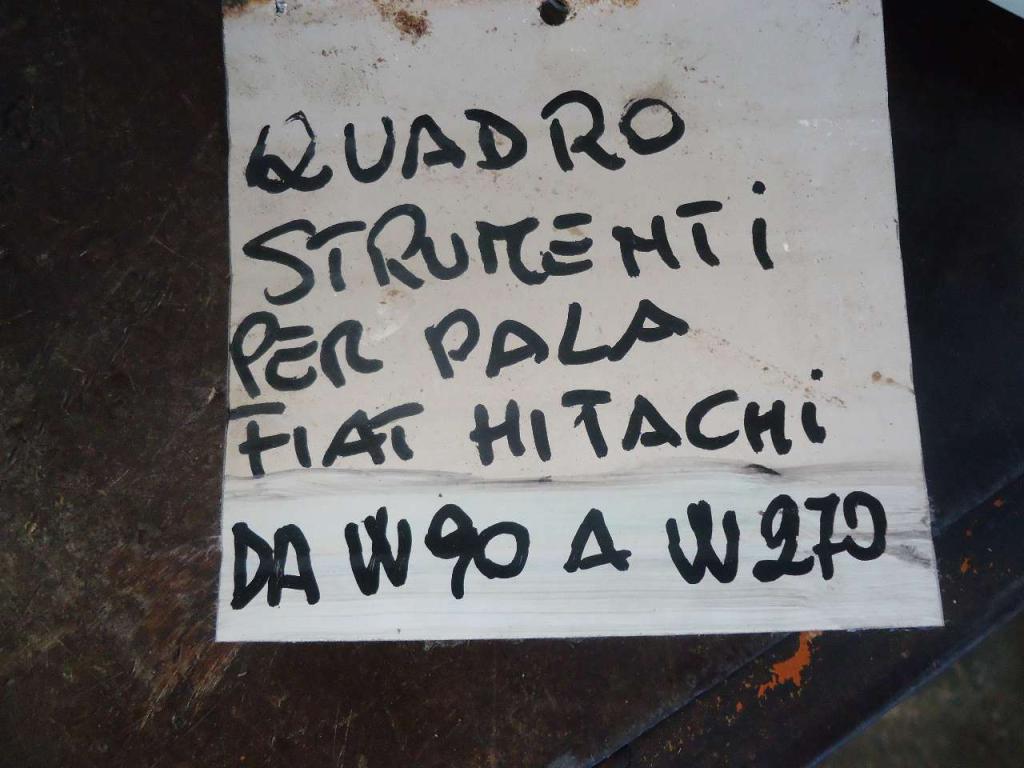 QUADRO
STRUMENTi
PER PALA
FIAT HITACHi
DA W90 A W270